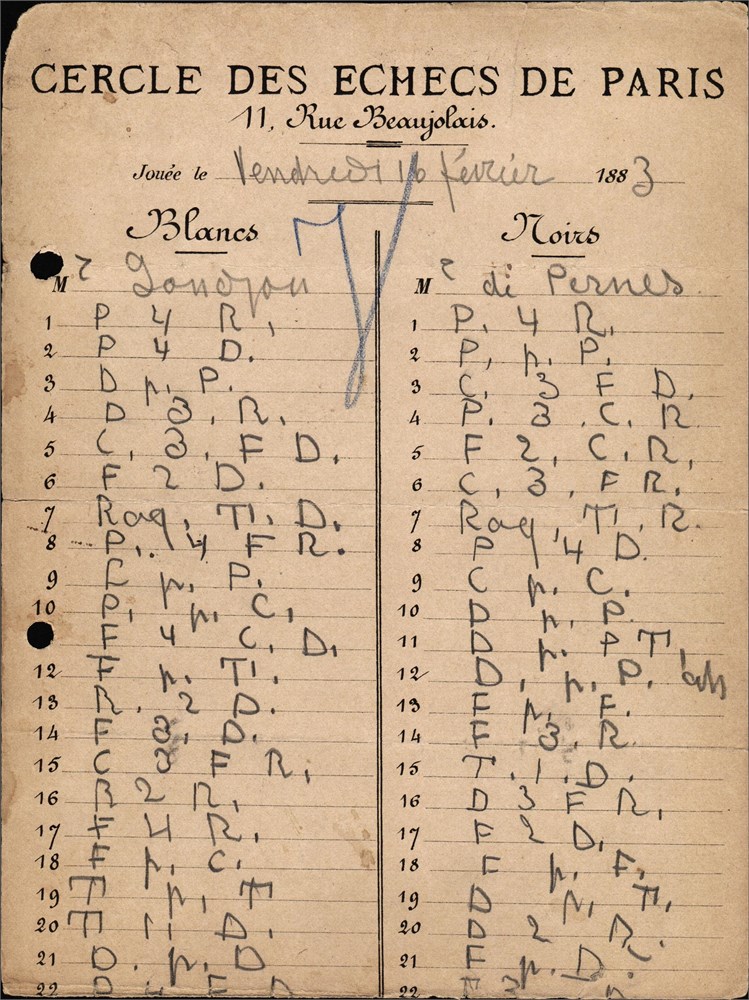 CERCLE DES ECHECS DE PARIS
11, Rue Beaujolais.
Jouée le Vendredi 16 février 1883
Blancs Noirs
Mr Mr di Pernes
1 P 4 R, 1 P. 4 R.
2 P 4 D. 2 P, p. P.
3 D p. P. 3 C. 3 F D.
4 D 3. R. 4 P. 3 C. R
5 C, 3, F D. 5 F 2, C. R,
6 F 2 D. 6 C, 3, F R.
7 Roq, T. D. 7 Roq, T. R.
8 P. 4 F R. 8 P 4 D.
9 P p. P. 9 C p. C.
10 P, p. C, 10 D p. P.
F 4 C, D. 11 D p. P T
12 F p. T. 12 D, p. P.
13 R. 2 D. 13 F p. F.
14 F 3. D. 14 F 3. R
15 C 3 F R, 15 T. 1. D.
16 R 2 R, 16 D 3 F R,
17 F 4 R. 17 F 2 D,
18 F p. C. 18 F p. F.
19 T p, T 19 D p, T.
20 T 1. D. 20 D 2 R.
21 D. p. D 21 F p. D.
22 22